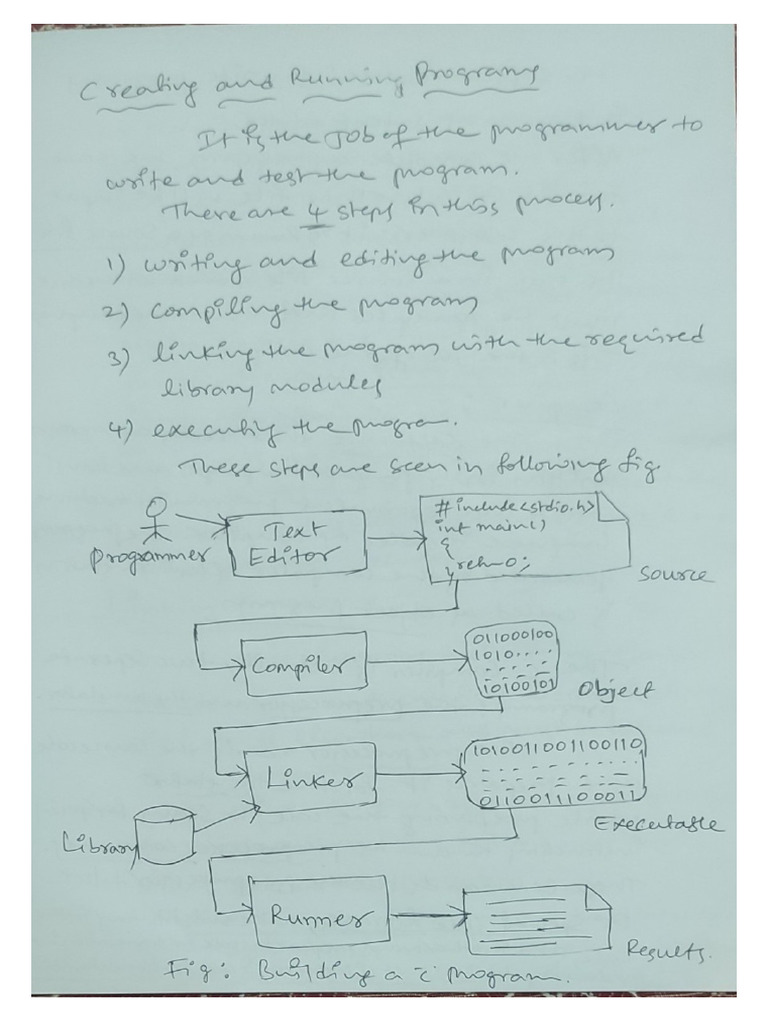 Creating and Running Programs
It is the Job of the programmer to
write and test the program.
There are 4 steps in this process.
1) writing and editing the program
2) compiling the program
3) linking the program with the required
library modules
4) executing the program.
These steps are seen in following fig.
Programmer
Text
Editor
#include<stdio.h>
int main()
{
return 0;
}
Source
Compiler
011000100
1010....
10100101
Object
Linker
1010011001100110
0110011100011
Executable
Library
Runner
Results.
Fig: Building a 'c' program.